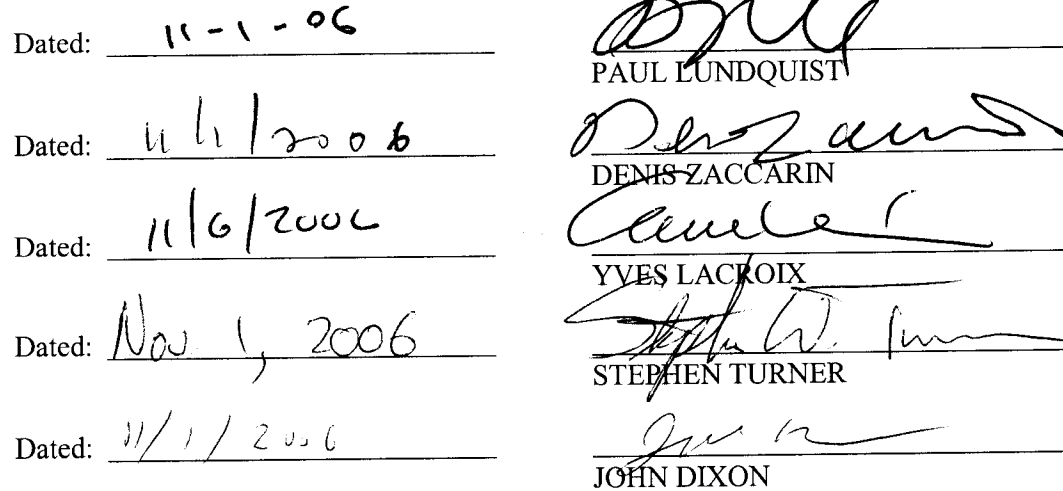 Dated: 11-1-06
PAUL LUNDQUIST
Dated: 11/1/2006
DENIS ZACCARIN
Dated: 11/6/2006
YVES LACROIX
Dated: Nov 1, 2006 Stephen W. Turner
STEPHEN TURNER
Dated: 11/1/2006
JOHN DIXON